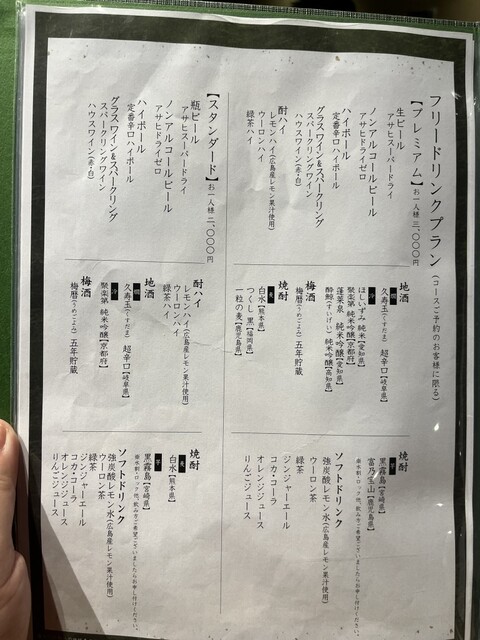 フリードリンクプラン(コースご予約のお客様に限る)
【プレミアム】お一人様 三、〇〇〇円
生ビール
アサヒスーパードライ
ノンアルコールビール
アサヒドライゼロ
ハイボール
定番辛口ハイボール
グラスワイン&スパークリング
スパークリングワイン
ハウスワイン(赤・白)
酎ハイ
レモンハイ(広島産レモン果汁使用)
ウーロンハイ
緑茶ハイ
地酒
燗
久寿玉(くすだま) 超辛口【岐阜県】
冷
ほしいずみ 純米【愛知県】
聚楽第 純米吟醸【京都府】
蓬莱泉 純米吟醸【愛知県】
酔鯨(すいげい) 純米吟醸【高知県】
梅酒
梅暦(うめごよみ)五年貯蔵
焼酎
麦
白水【熊本県】
つくし 黒【福岡県】
一粒の麦【鹿児島県】
焼酎
芋
黒霧島【宮崎県】
富乃宝山【鹿児島県】
※水割・ロック他、飲み方をご希望ございましたらお申し付けください。
ソフトドリンク
強炭酸レモン水(広島産レモン果汁使用)
ウーロン茶
緑茶
ジンジャーエール
コカ・コーラ
オレンジジュース
りんごジュース
【スタンダード】お一人様 二、〇〇〇円
瓶ビール
アサヒスーパードライ
ノンアルコールビール
アサヒドライゼロ
ハイボール
定番辛口ハイボール
グラスワイン&スパークリング
スパークリングワイン
ハウスワイン(赤・白)
酎ハイ
レモンハイ(広島産レモン果汁使用)
ウーロンハイ
緑茶ハイ
地酒
燗
久寿玉(くすだま) 超辛口【岐阜県】
冷
聚楽第 純米吟醸【京都府】
梅酒
梅暦(うめごよみ)五年貯蔵
焼酎
麦
白水【熊本県】
芋
黒霧島【宮崎県】
※水割・ロック他、飲み方をご希望ございましたらお申し付けください。
ソフトドリンク
強炭酸レモン水(広島産レモン果汁使用)
ウーロン茶
緑茶
ジンジャーエール
コカ・コーラ
オレンジジュース
りんごジュース